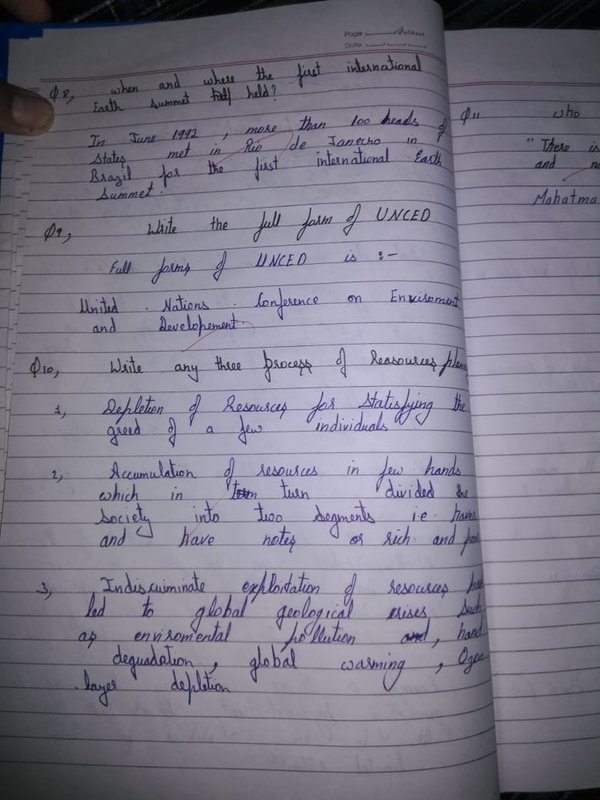 Page
Date
Q8, when and where the first international
Earth Summet held?
In June 1992, more than 100 heads of
states met in Rio de Janerio in
Brazil for the first international Earth
Summet.
Q9, Write the full form of UNCED
Full forms of UNCED is :-
United Nations Conference on Enviroment
and Developement.
Q10, Write any three process of Reasources plan
1, Depletion of Resources for statisfying the
greed of a few individuals
2, Accumulation of resources in few hands
which in turn divided the
society into two segments i.e. haves
and have notes or rich and poor
3, Indiscriminate exploitation of resources have
led to global geological crises such
as enviromental pollution and, hand
degradation, global warming, Ozon
layer depletion
Q11 who
"There is
and no
Mahatma